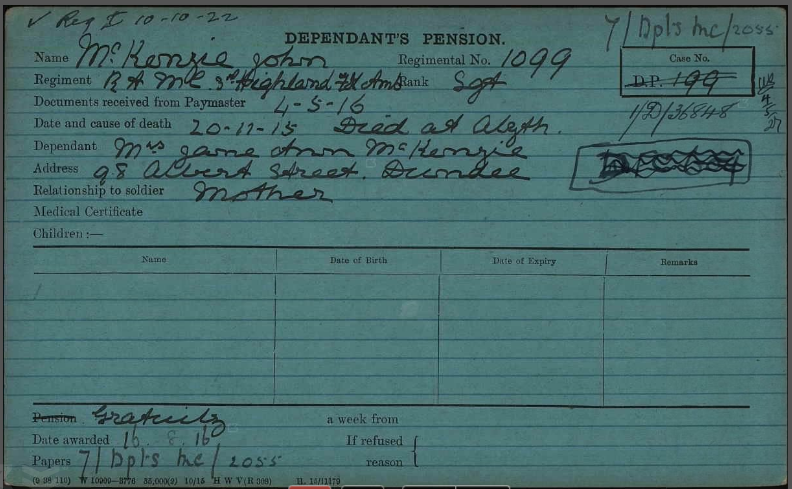 ✓ Reg I 10-10-22
7/Dpts Mc/2055
DEPENDANT'S PENSION.
Name McKenzie John Regimental No. 1099
Case No.
Regiment R A M C 3rd Highland Fd Amb Rank Sgt
D.P. 199
Documents received from Paymaster 4-5-16
1/D/36848
Date and cause of death 20-11-15 Died at Alyth.
Dependant Mrs Jane Ann McKenzie
Address 98 Albert Street. Dundee
Relationship to soldier Mother
Medical Certificate
Children :—
Name Date of Birth Date of Expiry Remarks
Pension Gratuity a week from
Date awarded 16.8.16 If refused
Papers 7/Dpts Mc/2055 reason
W 10909—3776 35,000(2) 10/15 H W V(R 308)